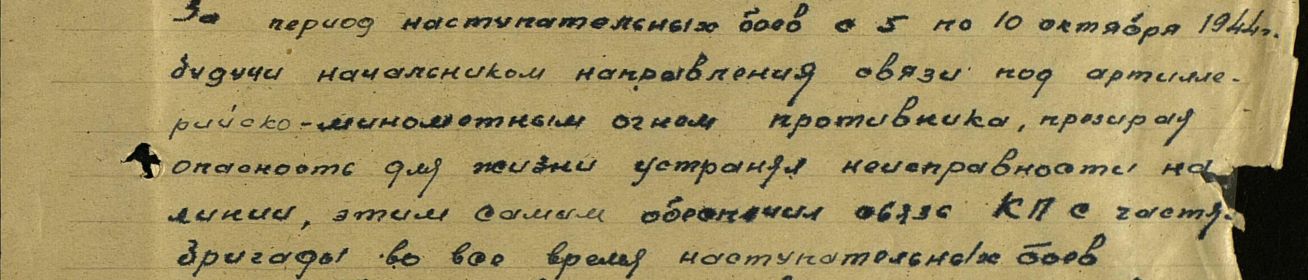 За период наступательных боев с 5 по 10 октября 1944 г.
будучи начальником направления связи под артилле-
рийско-минометным огнем противника, презирая
опасность для жизни устранял неисправности на
линии, этим самым обеспечил связь КП с частя
бригады во все время наступательных боев